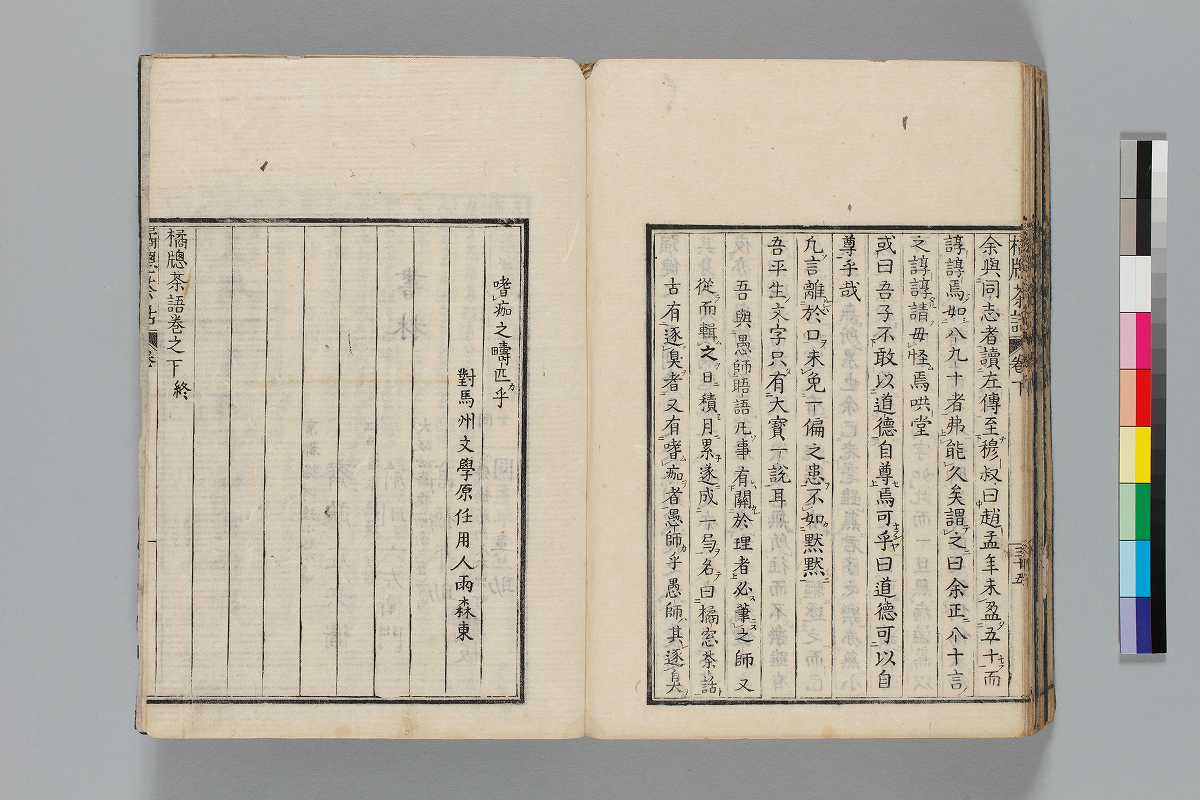 余與同志者讀左傳至穆叔曰趙孟年未盈五十而
諄諄焉如八九十者弗能久矣謂之曰余正八十言
之諄諄請毋怪焉哄堂
或曰吾子不敢以道德自尊焉可乎曰道德可以自
尊乎哉
凢言離於口未免一偏之患不如默默
吾平生文字只有大寳一說耳
吾與愚師晤語凡事有關於理者必筆之師又
從而輯之日積月累遂成一局名曰橘窓茶話
古有逐臭者又有嗜痂者愚師乎愚師其逐臭
嗜痂之疇匹乎
對馬州文學原任用人雨森東
橘牕茶語卷之下終